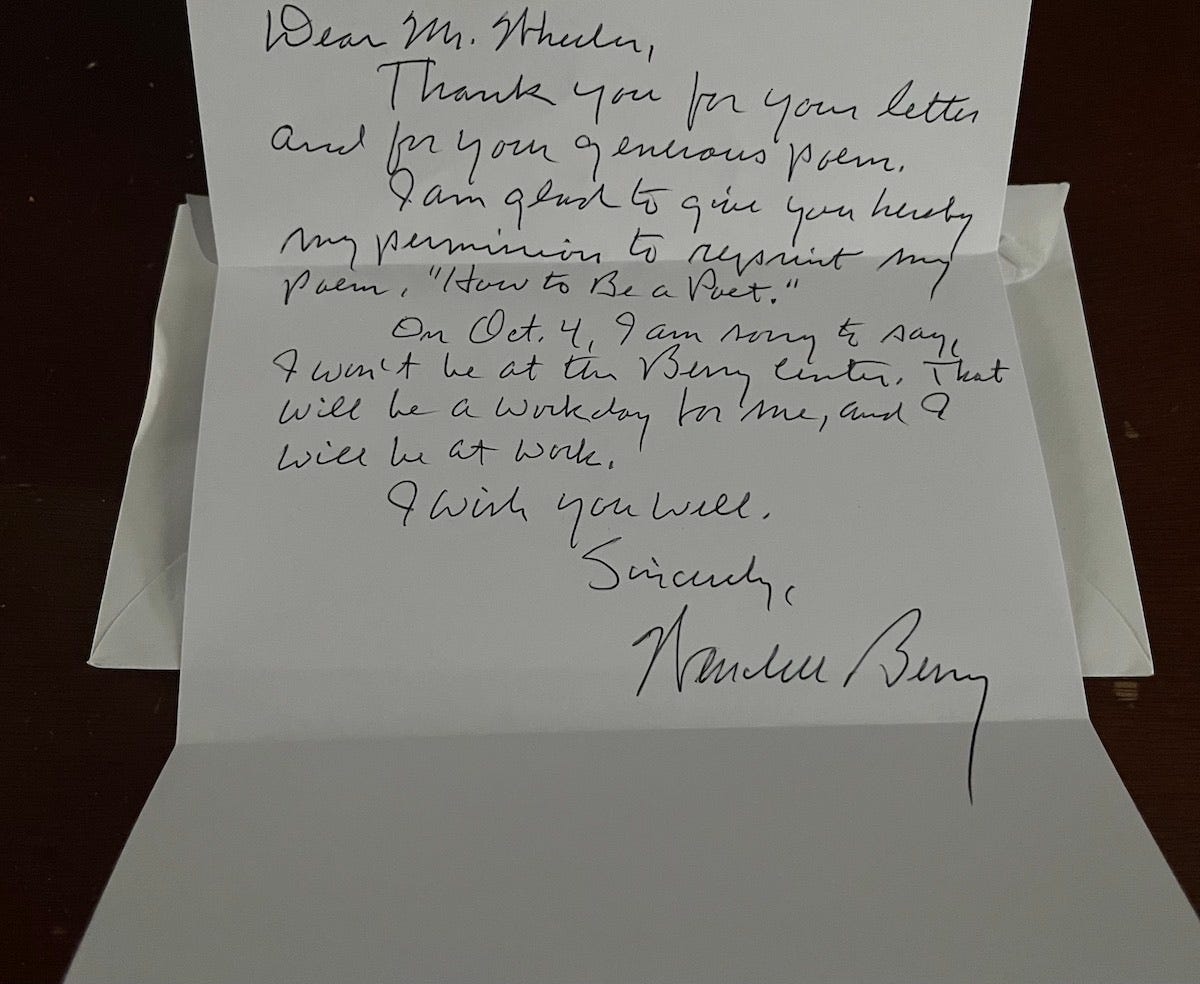 Dear Mr. Wheeler,
Thank you for your letter
and for your generous poem.
I am glad to give you hereby
my permission to reprint my
poem, "How to Be a Poet."
On Oct. 4, I am sorry to say,
I won't be at the Berry Center. That
will be a workday for me, and I
will be at work.
I wish you well.
Sincerely,
Wendell Berry